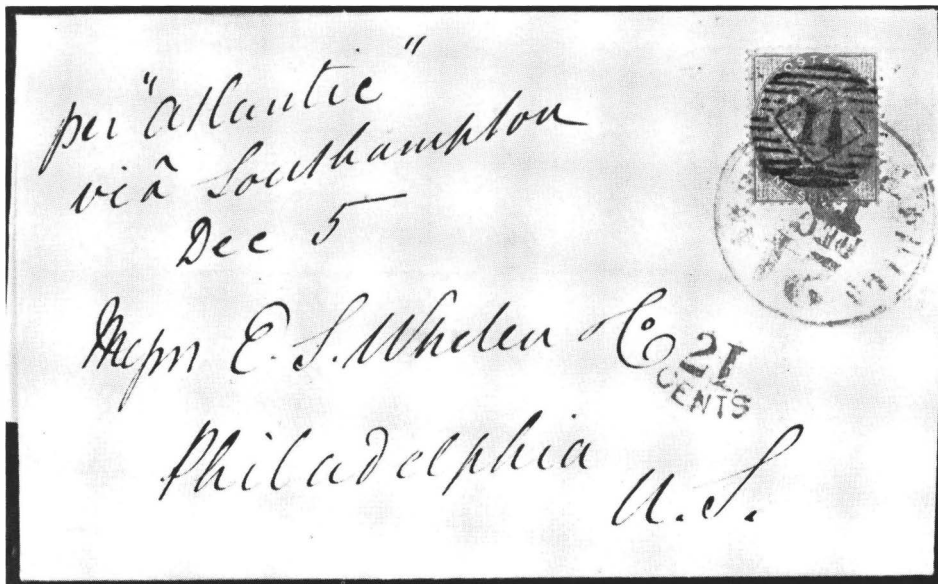 per "Atlantic"
via Southampton
Dec 5
POSTAGE
11
Messrs E. S. Whelen & Co
21
CENTS
Philadelphia
U.S.